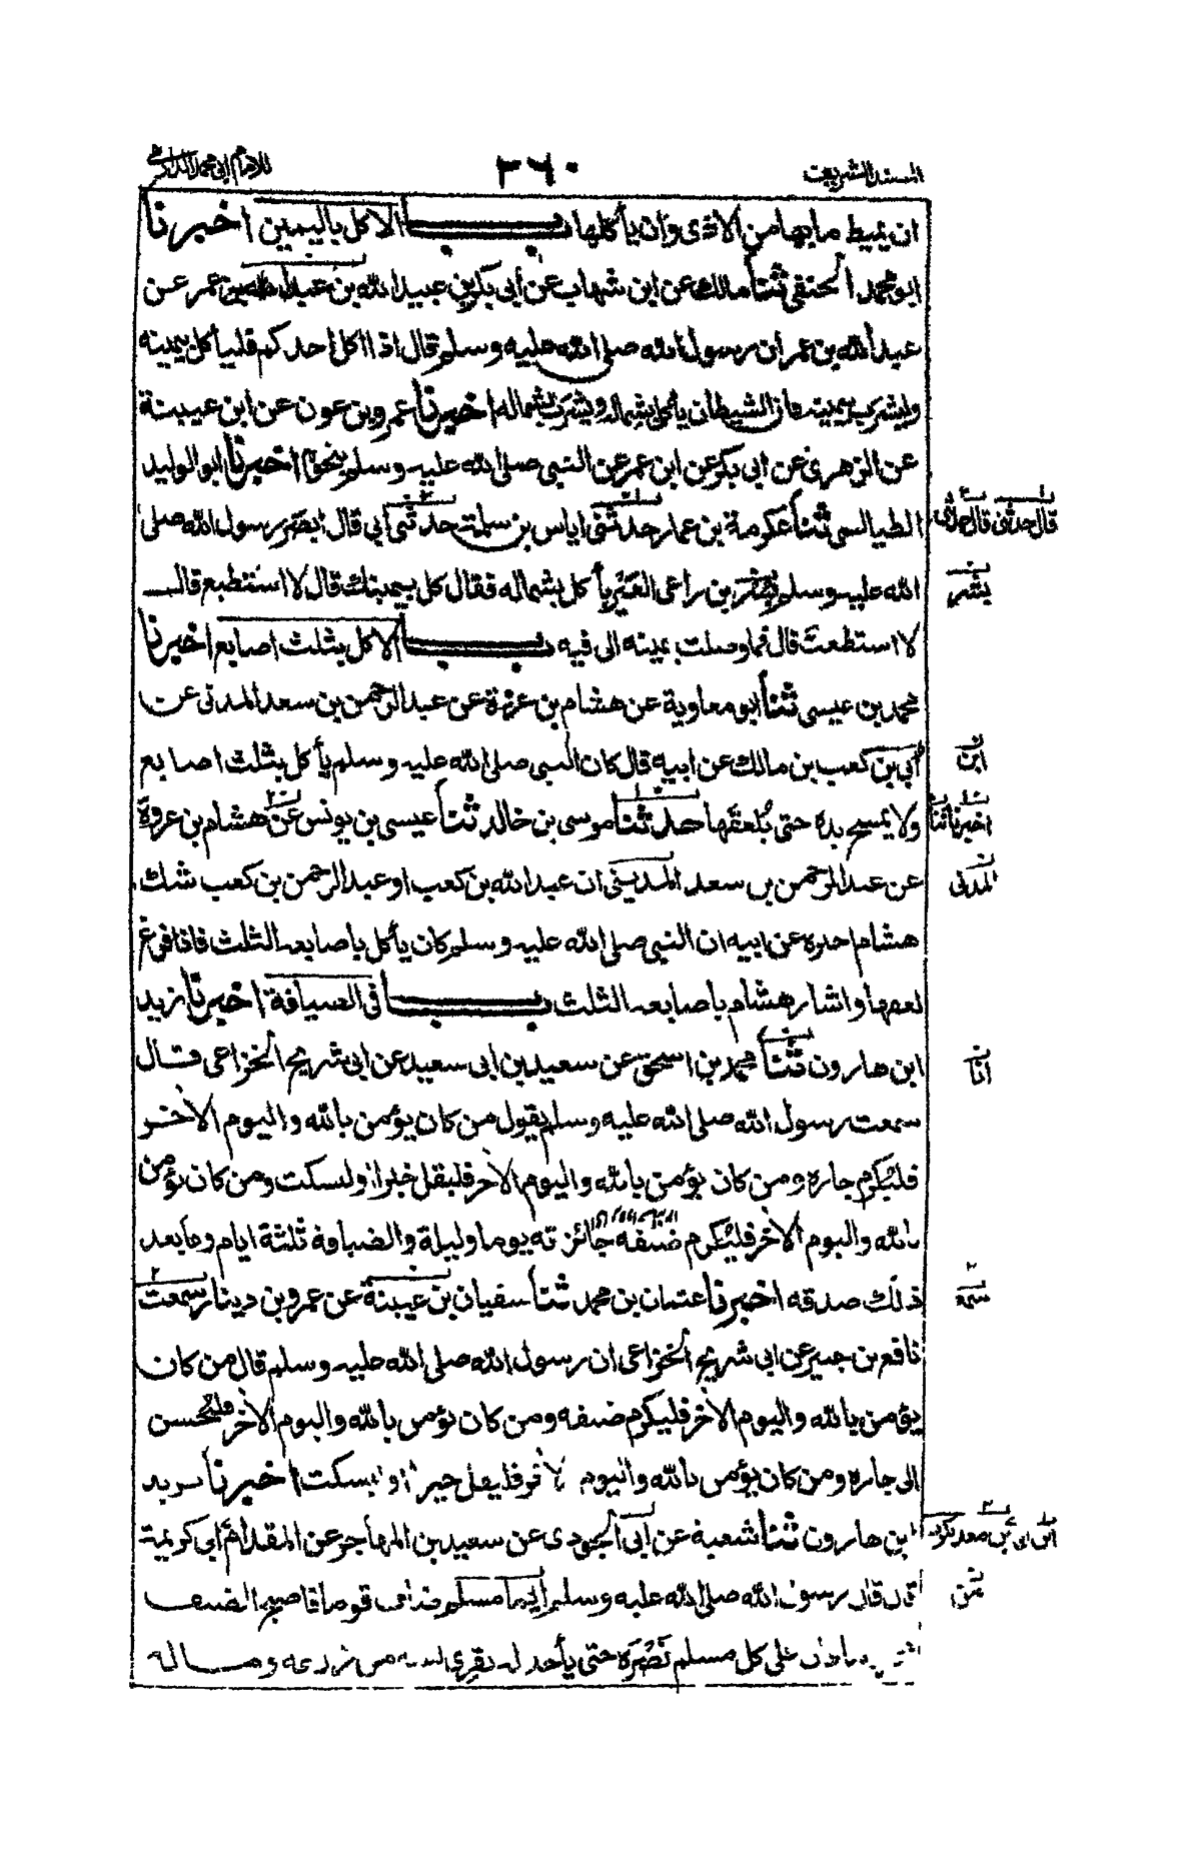 المسند الشريف ٢٦٠ للامام ابي محمد الدارمي
ان يميط ما بها من الاذى وان يأكلها باب الاكل باليمين اخبرنا
ابو محمد الحنفي ثنا مالك عن ابن شهاب عن أبي بكر بن عبيد الله بن عبد الله بن عمر عن
عبد الله بن عمر ان رسول الله صلى الله عليه وسلم قال اذا اكل احدكم فليأكل بيمينه
وليشرب بيمينه فان الشيطان يأكل بشماله ويشرب بشماله اخبرنا عمرو بن عون عن ابن عيينة
عن الزهري عن ابي بكر عن ابن عمر عن النبي صلى الله عليه وسلم بنحوه اخبرنا ابو الوليد
الطيالسي ثنا عكرمة بن عمار حدثني اياس بن سلمة حدثني أبي قال ابصر رسول الله صلى
قال حدثني قال حدثني
الله عليه وسلم بسر بن راعي العير يأكل بشماله فقال كل بيمينك قال لا استطيع قال
بشر
لا استطعت قال فما وصلت يمينه الى فيه باب الاكل بثلث اصابع اخبرنا
محمد بن عيسى ثنا ابو معاوية عن هشام بن عروة عن عبد الرحمن بن سعد المدني عن
أبي بن كعب بن مالك عن ابيه قال كان النبي صلى الله عليه وسلم يأكل بثلث اصابع
ابن
ولا يمسح يده حتى يلعقها حدثنا موسى بن خالد ثنا عيسى بن يونس عن هشام بن عروة
اخبرنا ثنا
عن عبد الرحمن بن سعد المديني ان عبد الله بن كعب او عبد الرحمن بن كعب شك
المدني
هشام اخبره عن ابيه ان النبي صلى الله عليه وسلم كان يأكل باصابعه الثلث فاذا فرغ
لعقها واشار هشام باصابعه الثلث باب في الضيافة اخبرنا يزيد
ابن هارون ثنا محمد بن اسحق عن سعيد بن ابي سعيد عن ابي شريح الخزاعي قال
انا
سمعت رسول الله صلى الله عليه وسلم يقول من كان يؤمن بالله واليوم الآخر
فليكرم جاره ومن كان يؤمن بالله واليوم الآخر فليقل خيرا او ليسكت ومن كان يؤمن
بالله واليوم الآخر فليكرم ضيفه جائزته يوما وليلة والضيافة ثلثة ايام وما بعد
ذلك صدقه اخبرنا عثمان بن محمد ثنا سفيان بن عيينة عن عمرو بن دينار سمعت
سمع
نافع بن جبير عن ابي شريح الخزاعي ان رسول الله صلى الله عليه وسلم قال من كان
يؤمن بالله واليوم الآخر فليكرم ضيفه ومن كان يؤمن بالله واليوم الآخر فليحسن
الى جاره ومن كان يؤمن بالله واليوم الآخر فليقل خيرا او ليسكت اخبرنا يزيد
ابن هارون ثنا شعبة عن أبي الجودي عن سعيد بن المهاجر عن المقدام أبي كريمة
قال قال رسول الله صلى الله عليه وسلم ايما مسلم ضاف قوما فاصبح الضيف
من
على كل مسلم نصره حتى يأخذ له بقرى ليلته من زرعه وماله